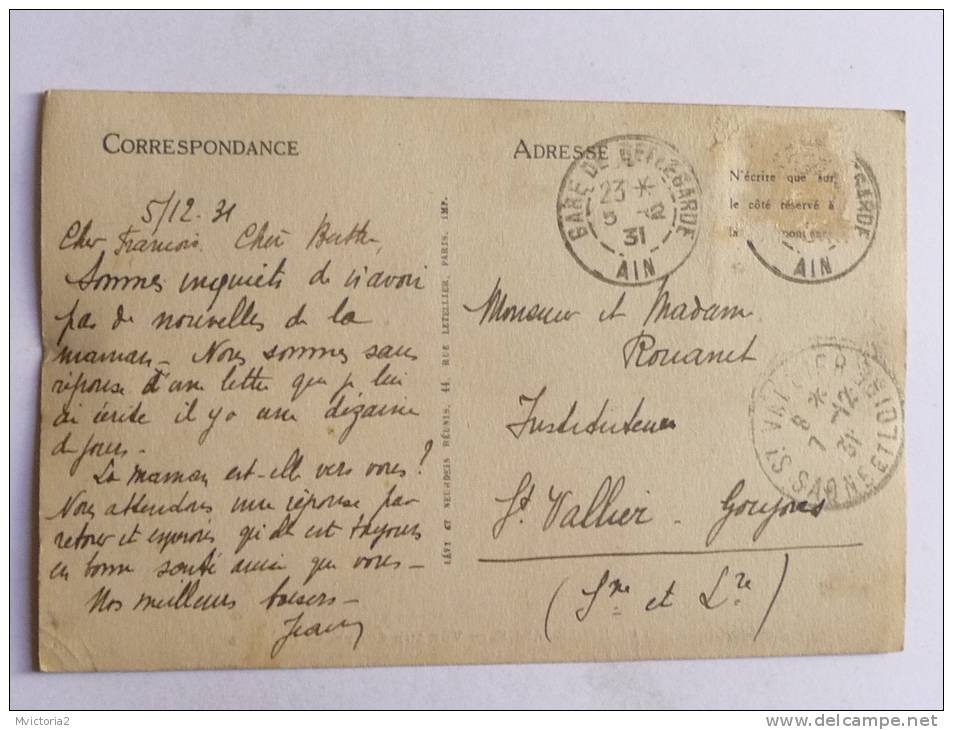 CORRESPONDANCE
5/12. 31
Cher François. Chère Berthe,
Sommes inquiets de n'avoir
pas de nouvelles de la
maman - Nous sommes sans
réponse d'une lettre que je lui
ai écrite il y a une dizaine
de jours -
La maman est-elle vers vous?
Nous attendons une réponse par
retour et espérons qu'elle est toujours
en bonne santé ainsi que vous -
Nos meilleurs baisers -
LÉVY ET NEURDEIN RÉUNIS, 44, RUE LETELLIER, PARIS, IMP.
ADRESSE
GARE DE BELLEGARDE
23 *
5 - 12
31
AIN
N'écrire que sur
le côté réservé à
la
GARDE
AIN
Monsieur et Madame
Rouanet
Instituteur
St. Vallier - Goujons
(Sne et Lre)
ST VALLIER
7 - 12
31
SAONE
Mvictoria2
delcampe.net